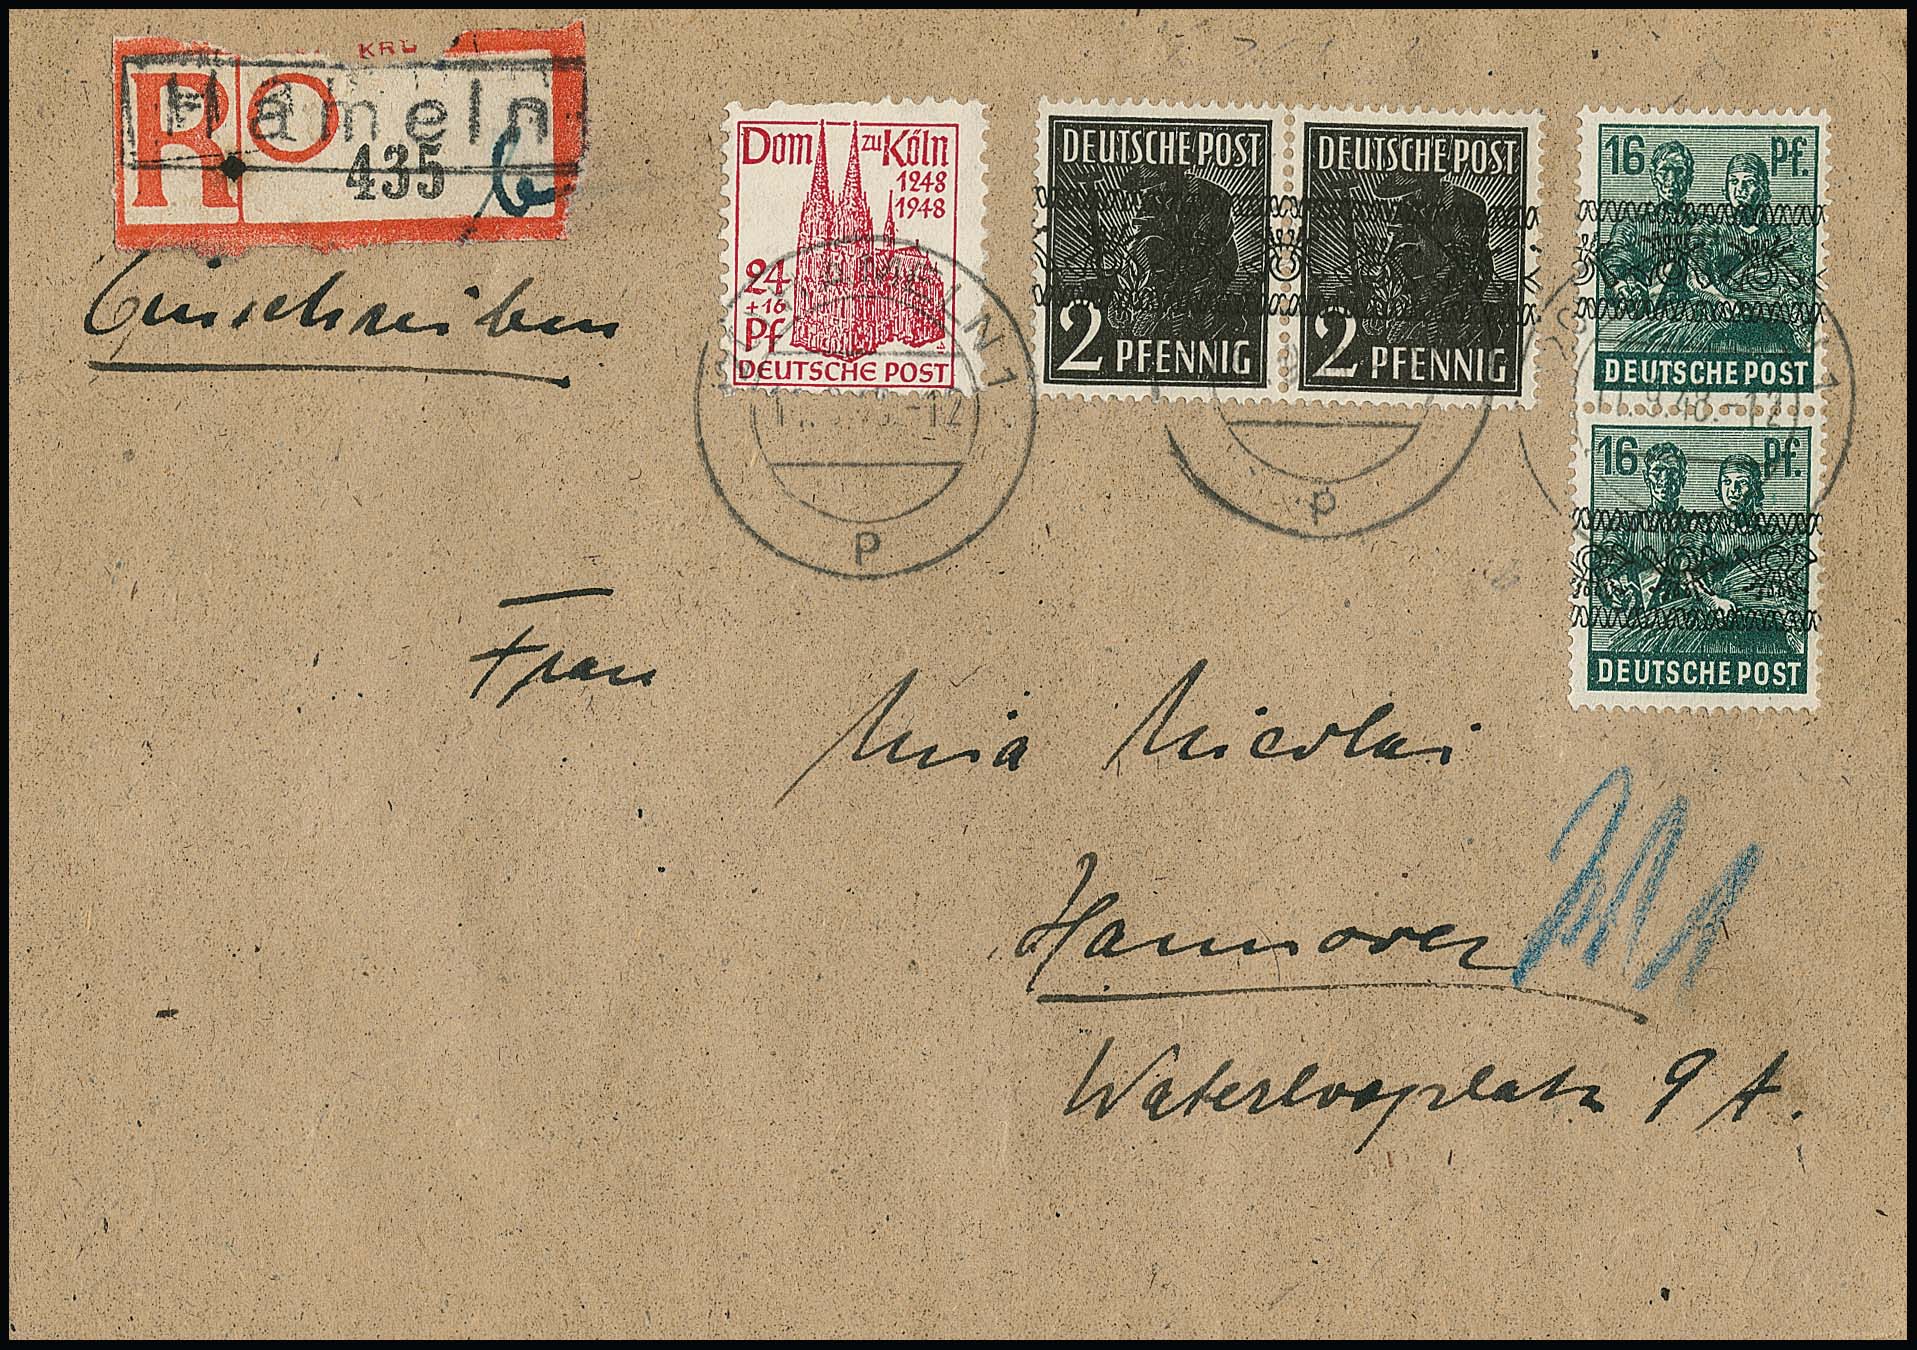 KRL
R
Hameln
435 b
Einschreiben
Dom zu Köln
1248
1948
24
+16
Pf
DEUTSCHE POST
DEUTSCHE POST
2 PFENNIG
DEUTSCHE POST
2 PFENNIG
16 Pf.
DEUTSCHE POST
16 Pf.
DEUTSCHE POST
HAMELN 1
-12
p
p
11.9.48.-12
Frau
Mia Nicolai
Hannover
Waterlooplatz 9 A.